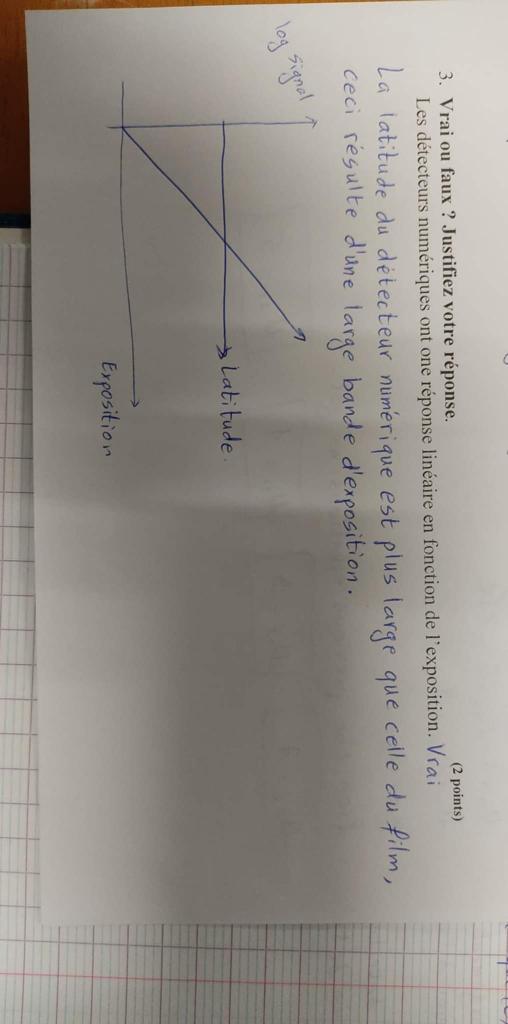 3. Vrai ou faux ? Justifiez votre réponse. (2 points)
Les détecteurs numériques ont one réponse linéaire en fonction de l'exposition. Vrai
La latitude du détecteur numérique est plus large que celle du film,
ceci résulte d'une large bande d'exposition.
log signal
Latitude.
Exposition